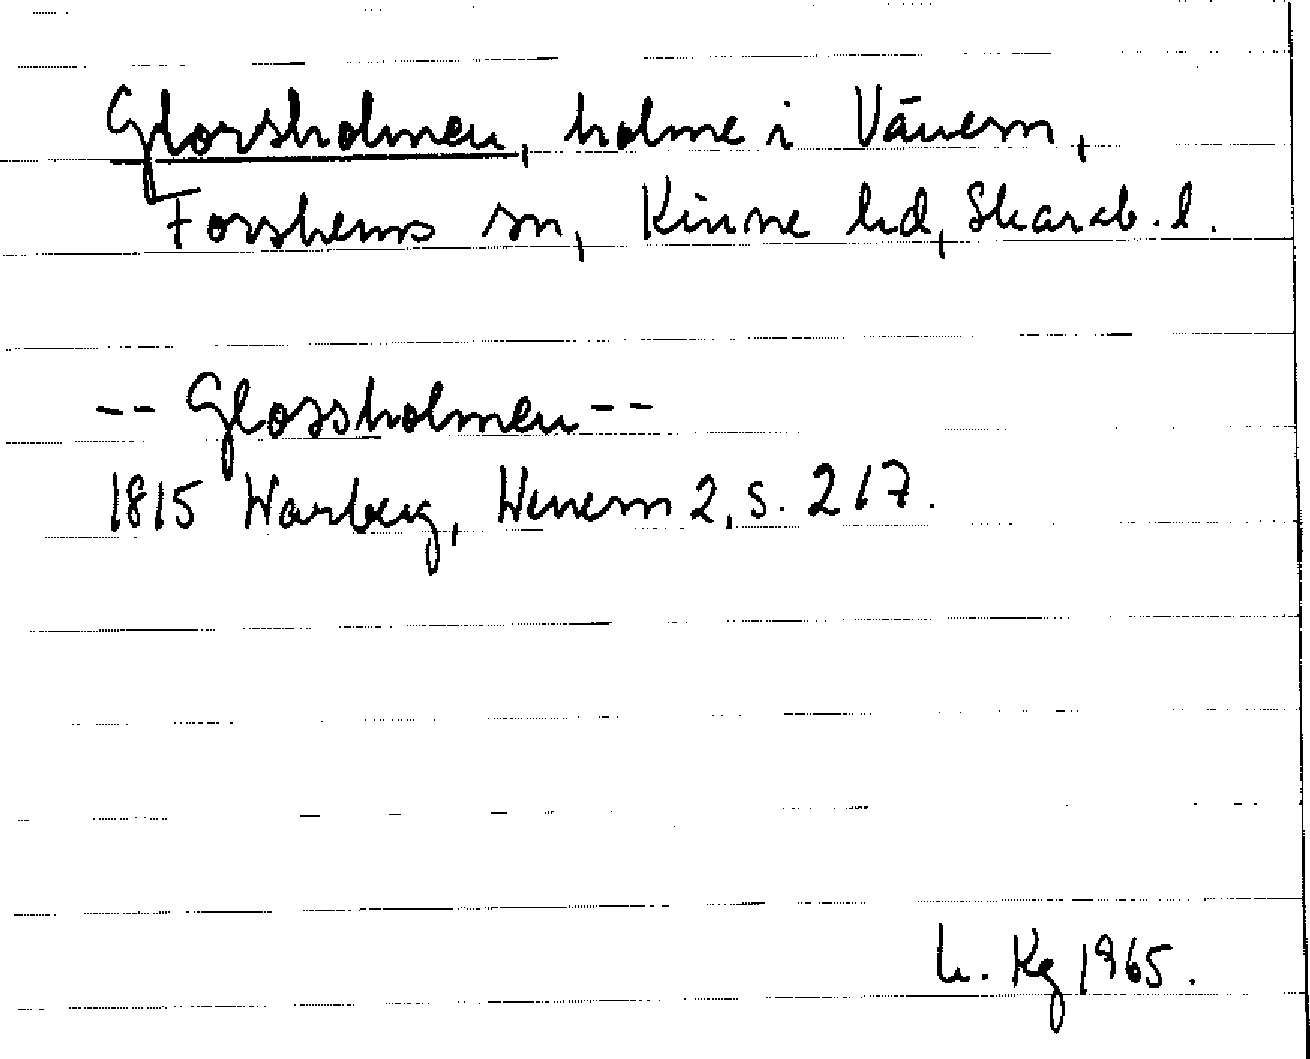 Glorsholmen, holme i Vänern,
Forshems sn, Kinne hd, Skarab. l.
-- Glossholmen --
1815 Warberg, Wenern 2, s. 217.
L. Kg 1965.